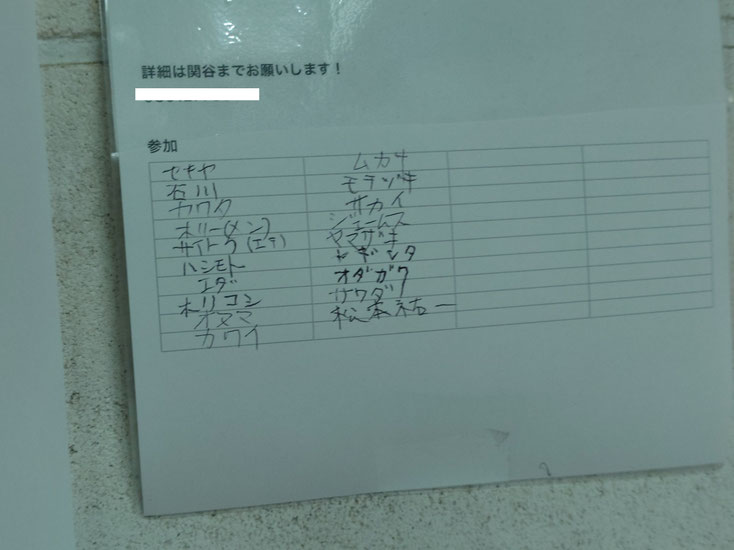 詳細は関谷までお願いします！
参加
セキヤ
石川
カワタ
オリー(メン)
サイトウ(エリ)
ハシモト
エダ
ホリコシ
オヌマ
カワイ
ムカサ
サカイ
ジェームス
ヤマザキ
オダガワ
サワダ
松本祐一